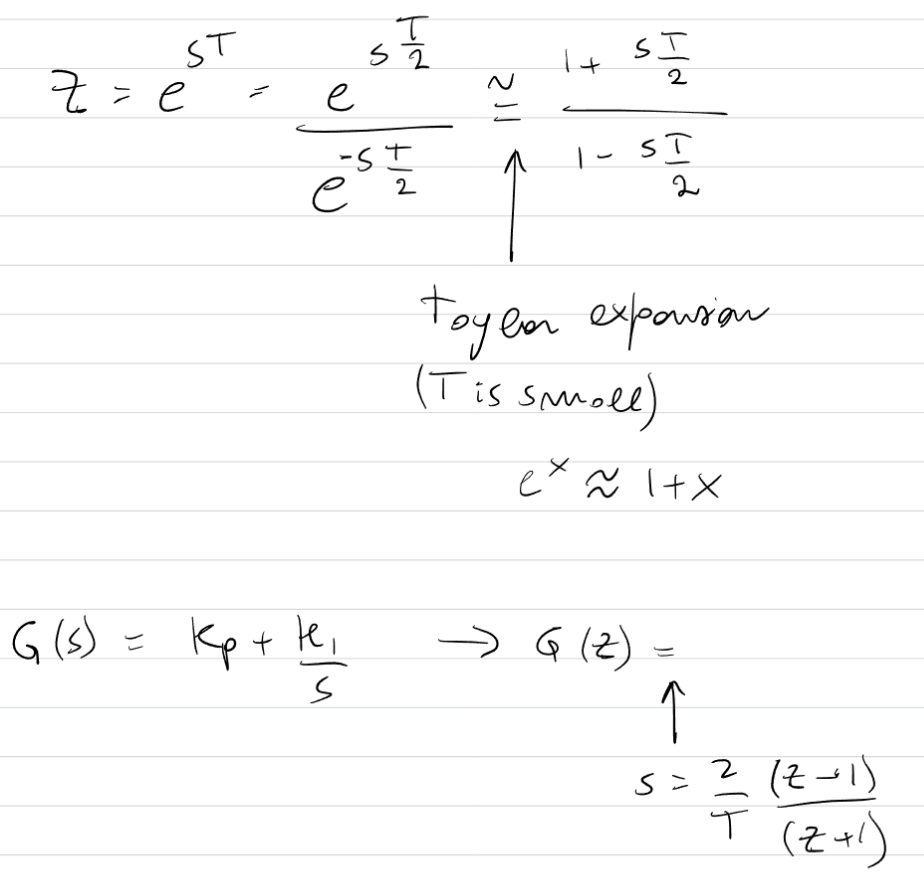 z = e^{sT} = \frac{e^{s\frac{T}{2}}}{e^{-s\frac{T}{2}}} ≅ \frac{1 + s\frac{T}{2}}{1 - s\frac{T}{2}}
↑
taylor expansion
(T is small)
e^x ≈ 1+x
G(s) = K_p + \frac{K_I}{s} → G(z) =
↑
s = \frac{2}{T} \frac{(z-1)}{(z+1)}